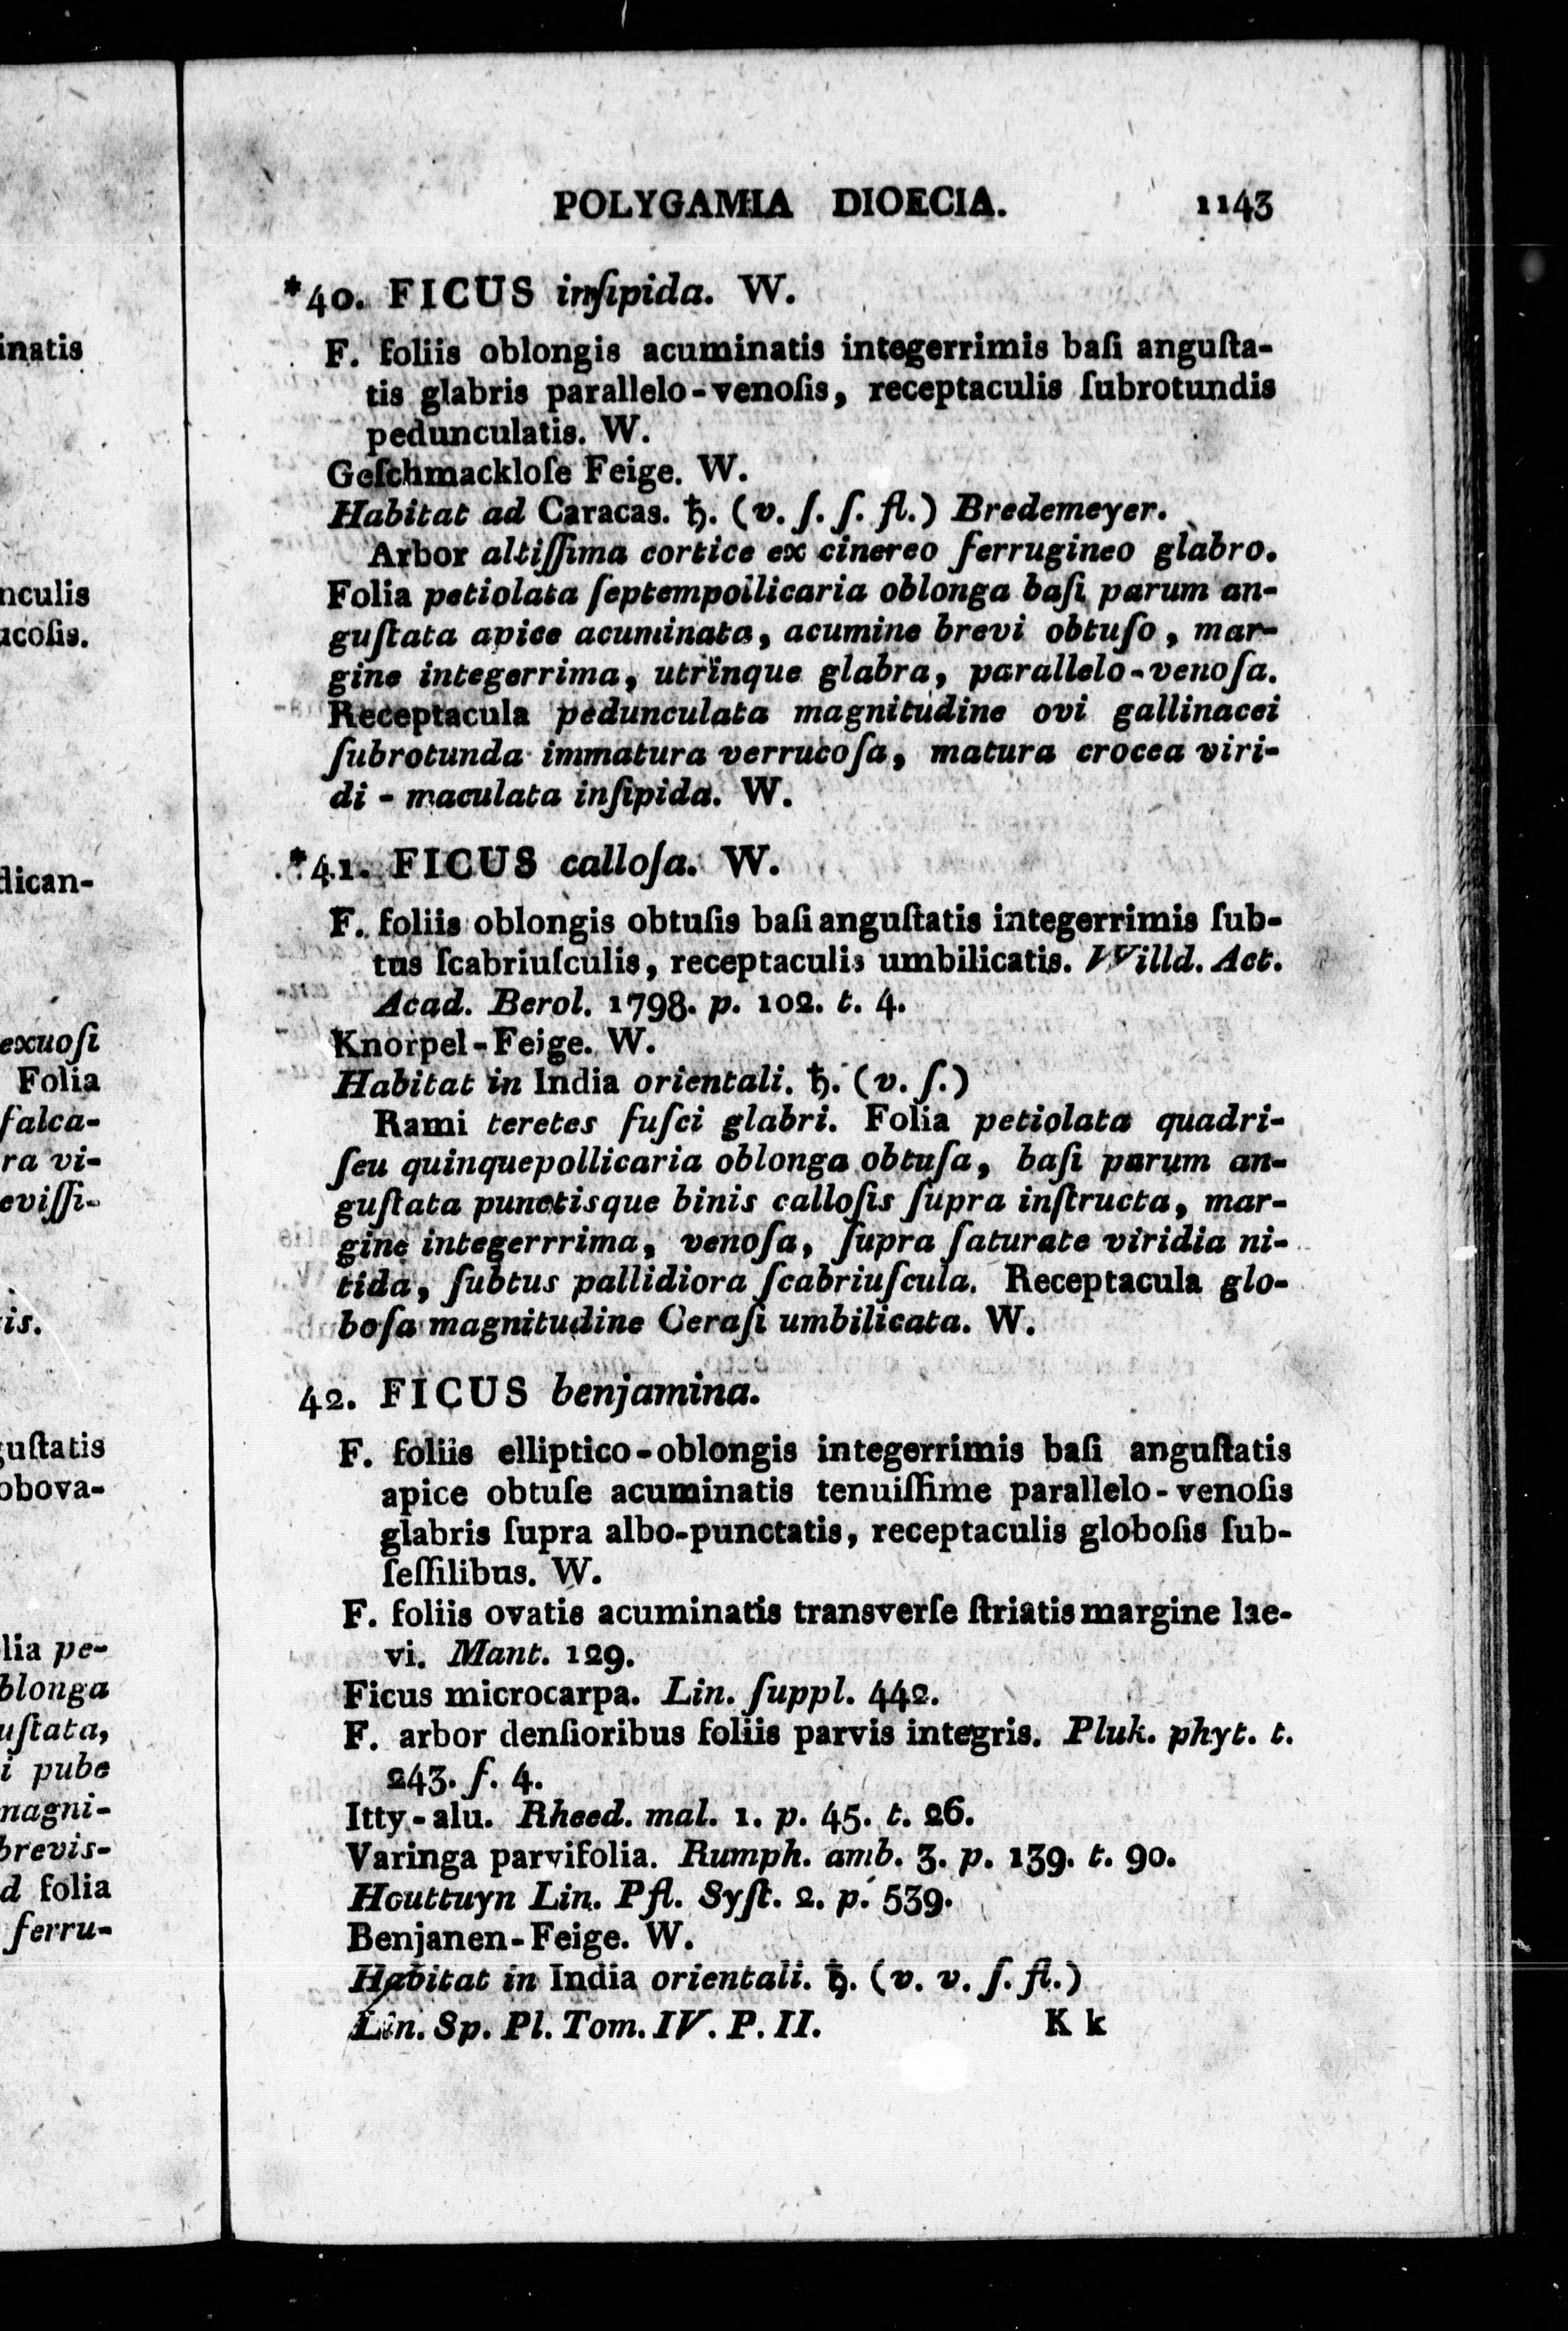 POLYGAMIA DIOECIA. 1143
*40. FICUS inſipida. W.
F. foliis oblongis acuminatis integerrimis baſi anguſta-
tis glabris parallelo-venoſis, receptaculis ſubrotundis
pedunculatis. W.
Geſchmackloſe Feige. W.
Habitat ad Caracas. ♄. (v. ſ. ſ. fl.) Bredemeyer.
Arbor altiſſima cortice ex cinereo ferrugineo glabro.
Folia petiolata ſeptempollicaria oblonga baſi parum an-
guſtata apice acuminata, acumine brevi obtuſo, mar-
gine integerrima, utrinque glabra, parallelo-venoſa.
Receptacula pedunculata magnitudine ovi gallinacei
ſubrotunda immatura verrucoſa, matura crocea viri-
di - maculata inſipida. W.
*41. FICUS calloſa. W.
F. foliis oblongis obtuſis baſi anguſtatis integerrimis ſub-
tus ſcabriuſculis, receptaculis umbilicatis. Willd. Act.
Acad. Berol. 1798. p. 102. t. 4.
Knorpel-Feige. W.
Habitat in India orientali. ♄. (v. ſ.)
Rami teretes fuſci glabri. Folia petiolata quadri-
ſeu quinquepollicaria oblonga obtuſa, baſi parum an-
guſtata punctisque binis calloſis ſupra inſtructa, mar-
gine integerrrima, venoſa, ſupra ſaturate viridia ni-
tida, ſubtus pallidiora ſcabriuſcula. Receptacula glo-
boſa magnitudine Ceraſi umbilicata. W.
42. FICUS benjamina.
F. foliis elliptico-oblongis integerrimis baſi anguſtatis
apice obtuſe acuminatis tenuiſſime parallelo-venoſis
glabris ſupra albo-punctatis, receptaculis globoſis ſub-
ſeſſilibus. W.
F. foliis ovatis acuminatis transverſe ſtriatis margine lae-
vi. Mant. 129.
Ficus microcarpa. Lin. ſuppl. 442.
F. arbor denſioribus foliis parvis integris. Pluk. phyt. t.
243. f. 4.
Itty-alu. Rheed. mal. 1. p. 45. t. 26.
Varinga parvifolia. Rumph. amb. 3. p. 139. t. 90.
Houttuyn Lin. Pfl. Syſt. 2. p. 539.
Benjanen-Feige. W.
Habitat in India orientali. ♄. (v. v. ſ. fl.)
Lin. Sp. Pl. Tom. IV. P. II. K k
inatis
nculis
ucoſis.
dican-
exuoſi
Folia
falca-
ra vi-
eviſſi-
is.
guſtatis
obova-
lia pe-
blonga
uſtata,
i pube
magni-
brevis-
d folia
ferru-